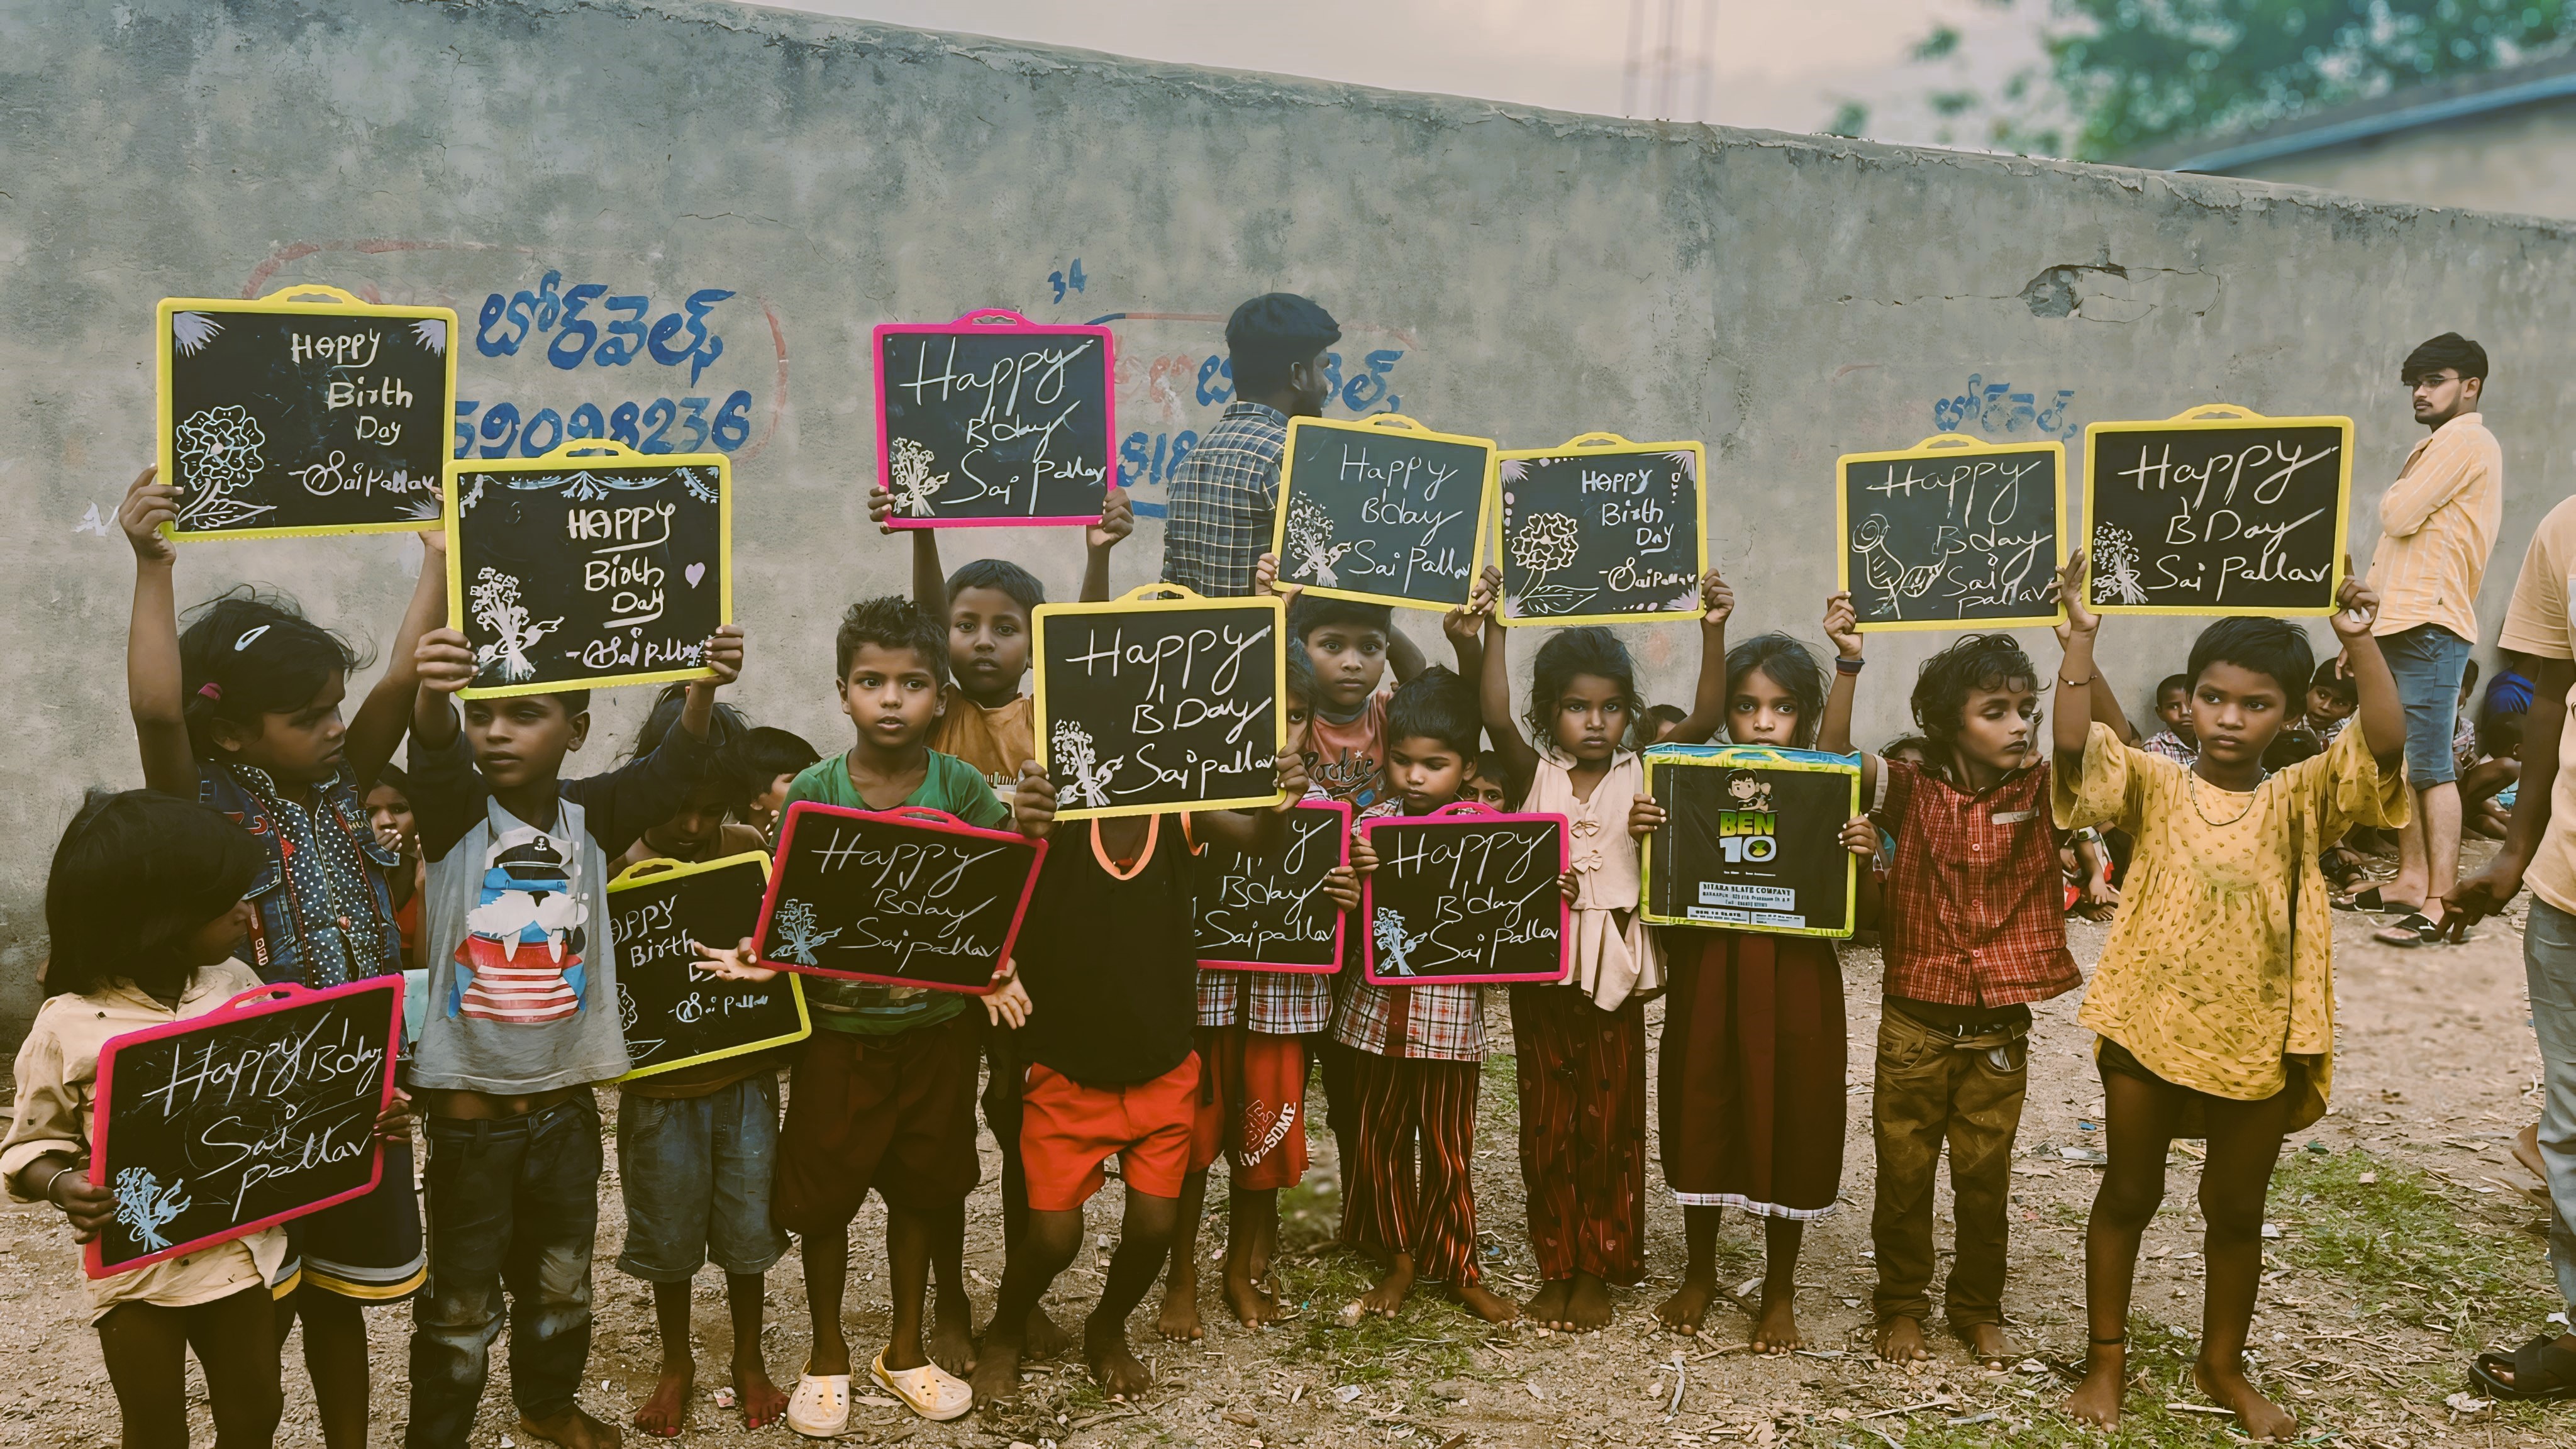 బోర్‌వెల్స్
59098236
34
Happy
Birth
Day
-Sai Pallav
Happy
Birth
Day
-Sai Pallav
Happy
B'day
Sai Pallav
Happy
B'Day
Sai Pallav
Happy
Bday
Sai Pallav
Happy
Birth
Day
-Sai Pallav
బోర్‌వెల్స్
Happy
Bday
Sai
Pallav
Happy
B Day
Sai Pallav
Happy B'day
Sai
Pallav
appy
Birth
-Sai Pallav
Happy
Bday
Sai Pallav
y
Bday
Sai Pallav
Happy
B'day
Sai Pallav
BEN
10
SITARA SLATE COMPANY
Rookie
AWESOME